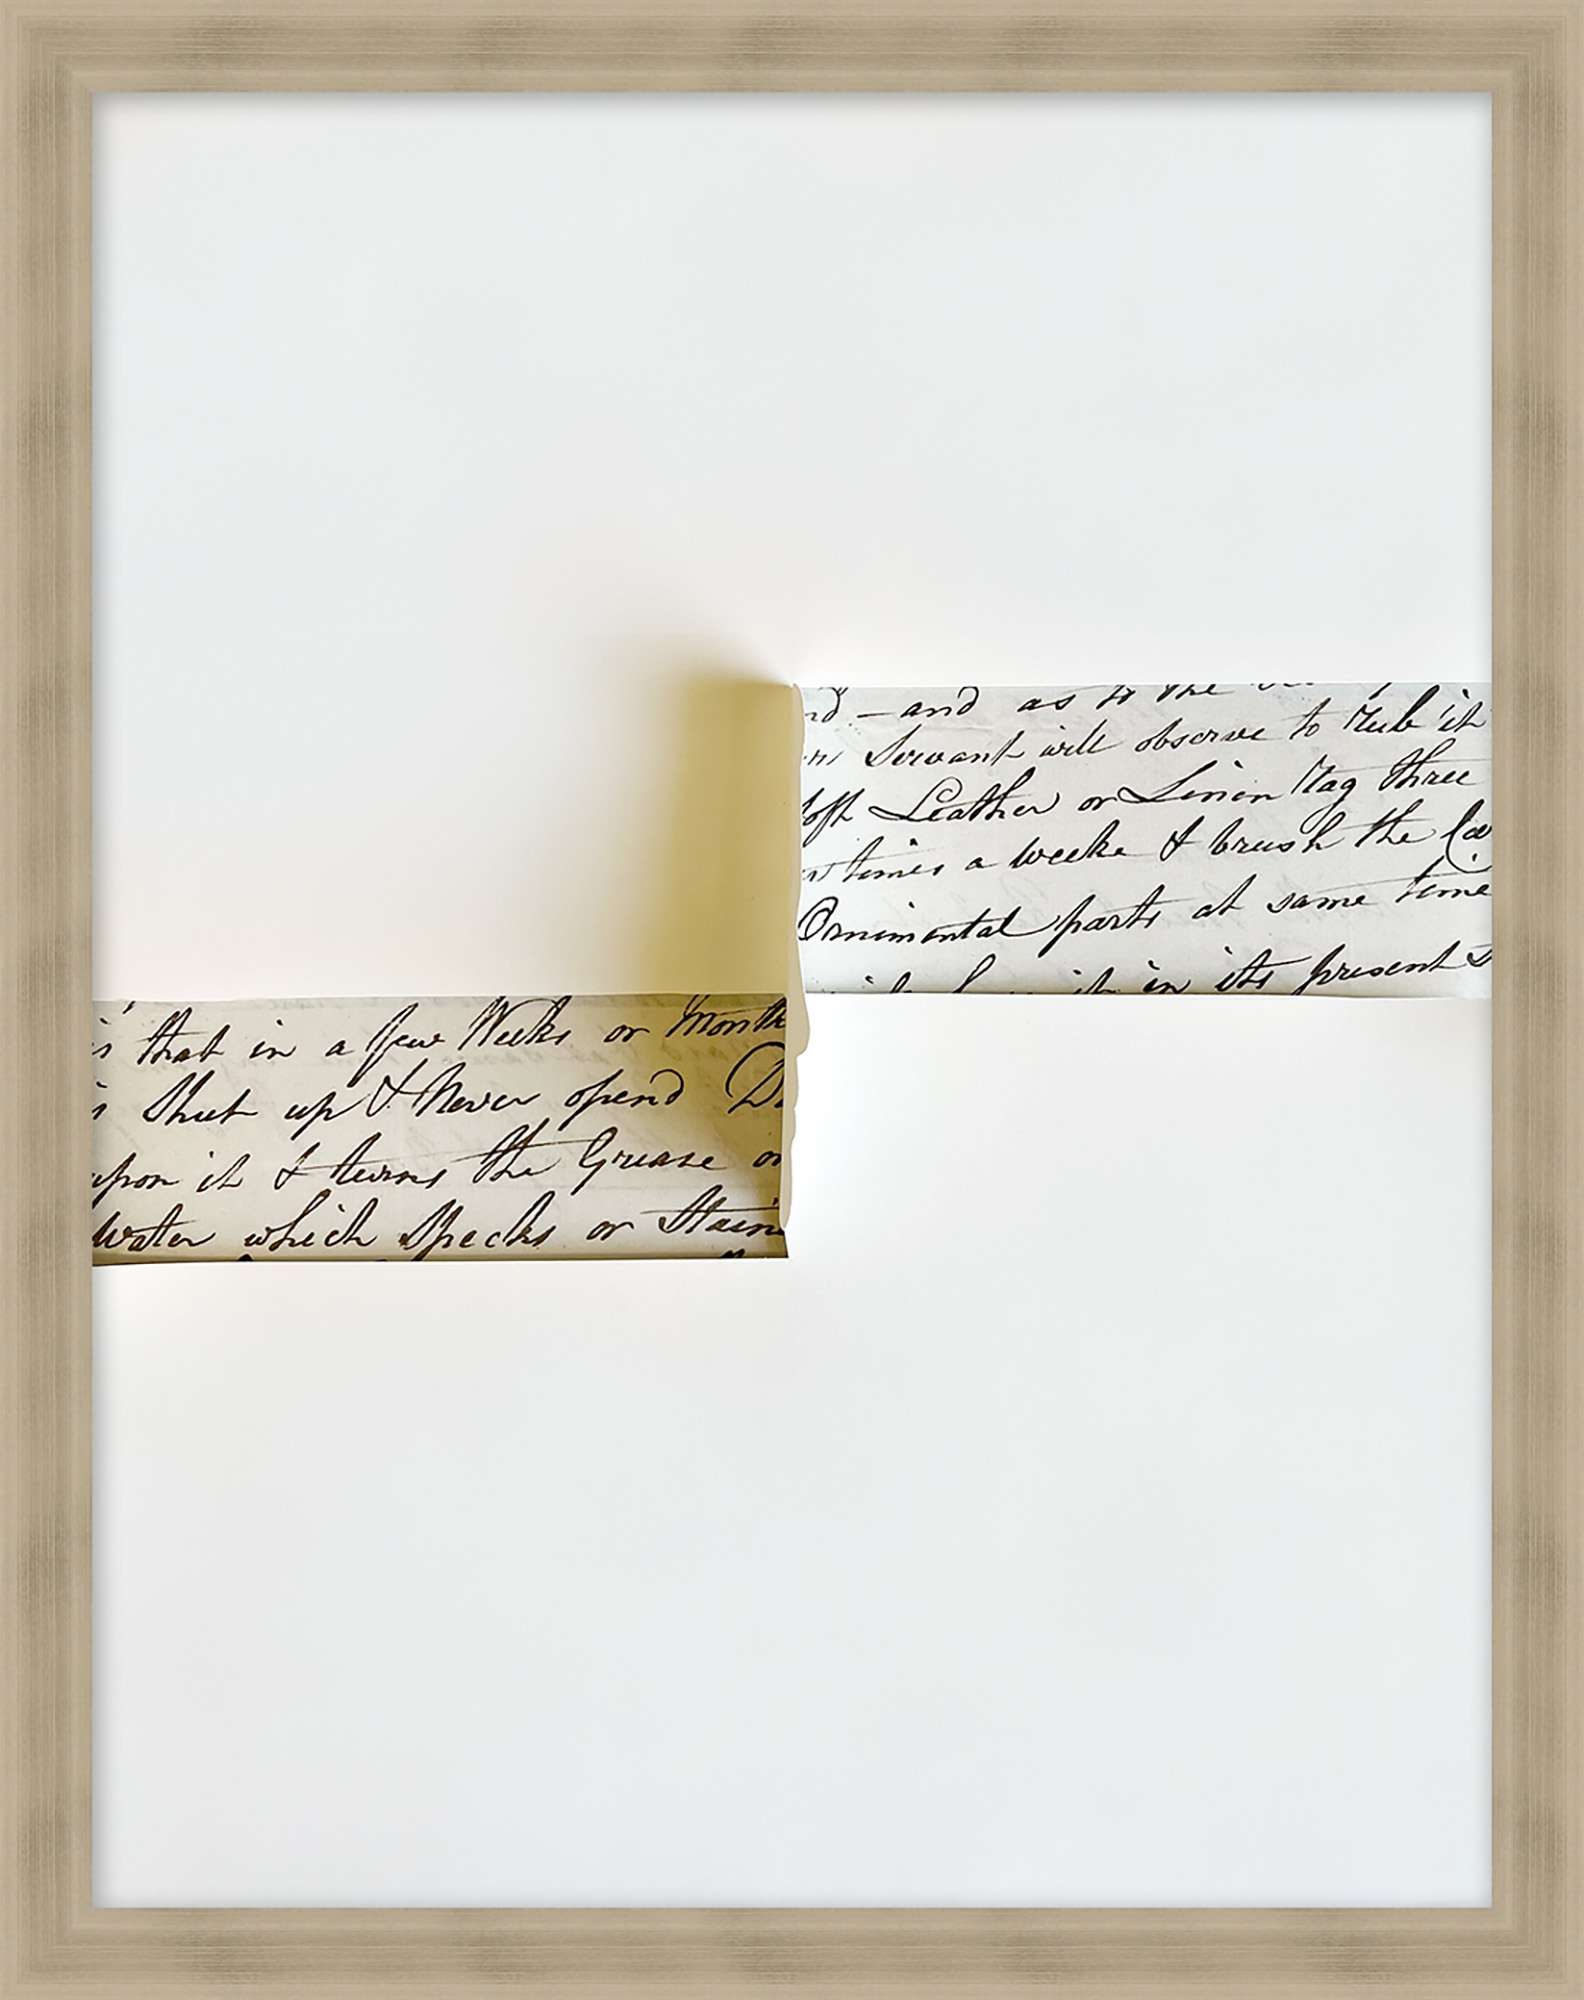 — and as to the
Servant will observe to Rub it
soft Leather or Linen Rag three
times a weeke & brush the
Ornimental parts at same time
it in its present
that in a few Weeks or Month
is Shut up & Never opend
upon it & turns the Grease or
water which Specks or Stains